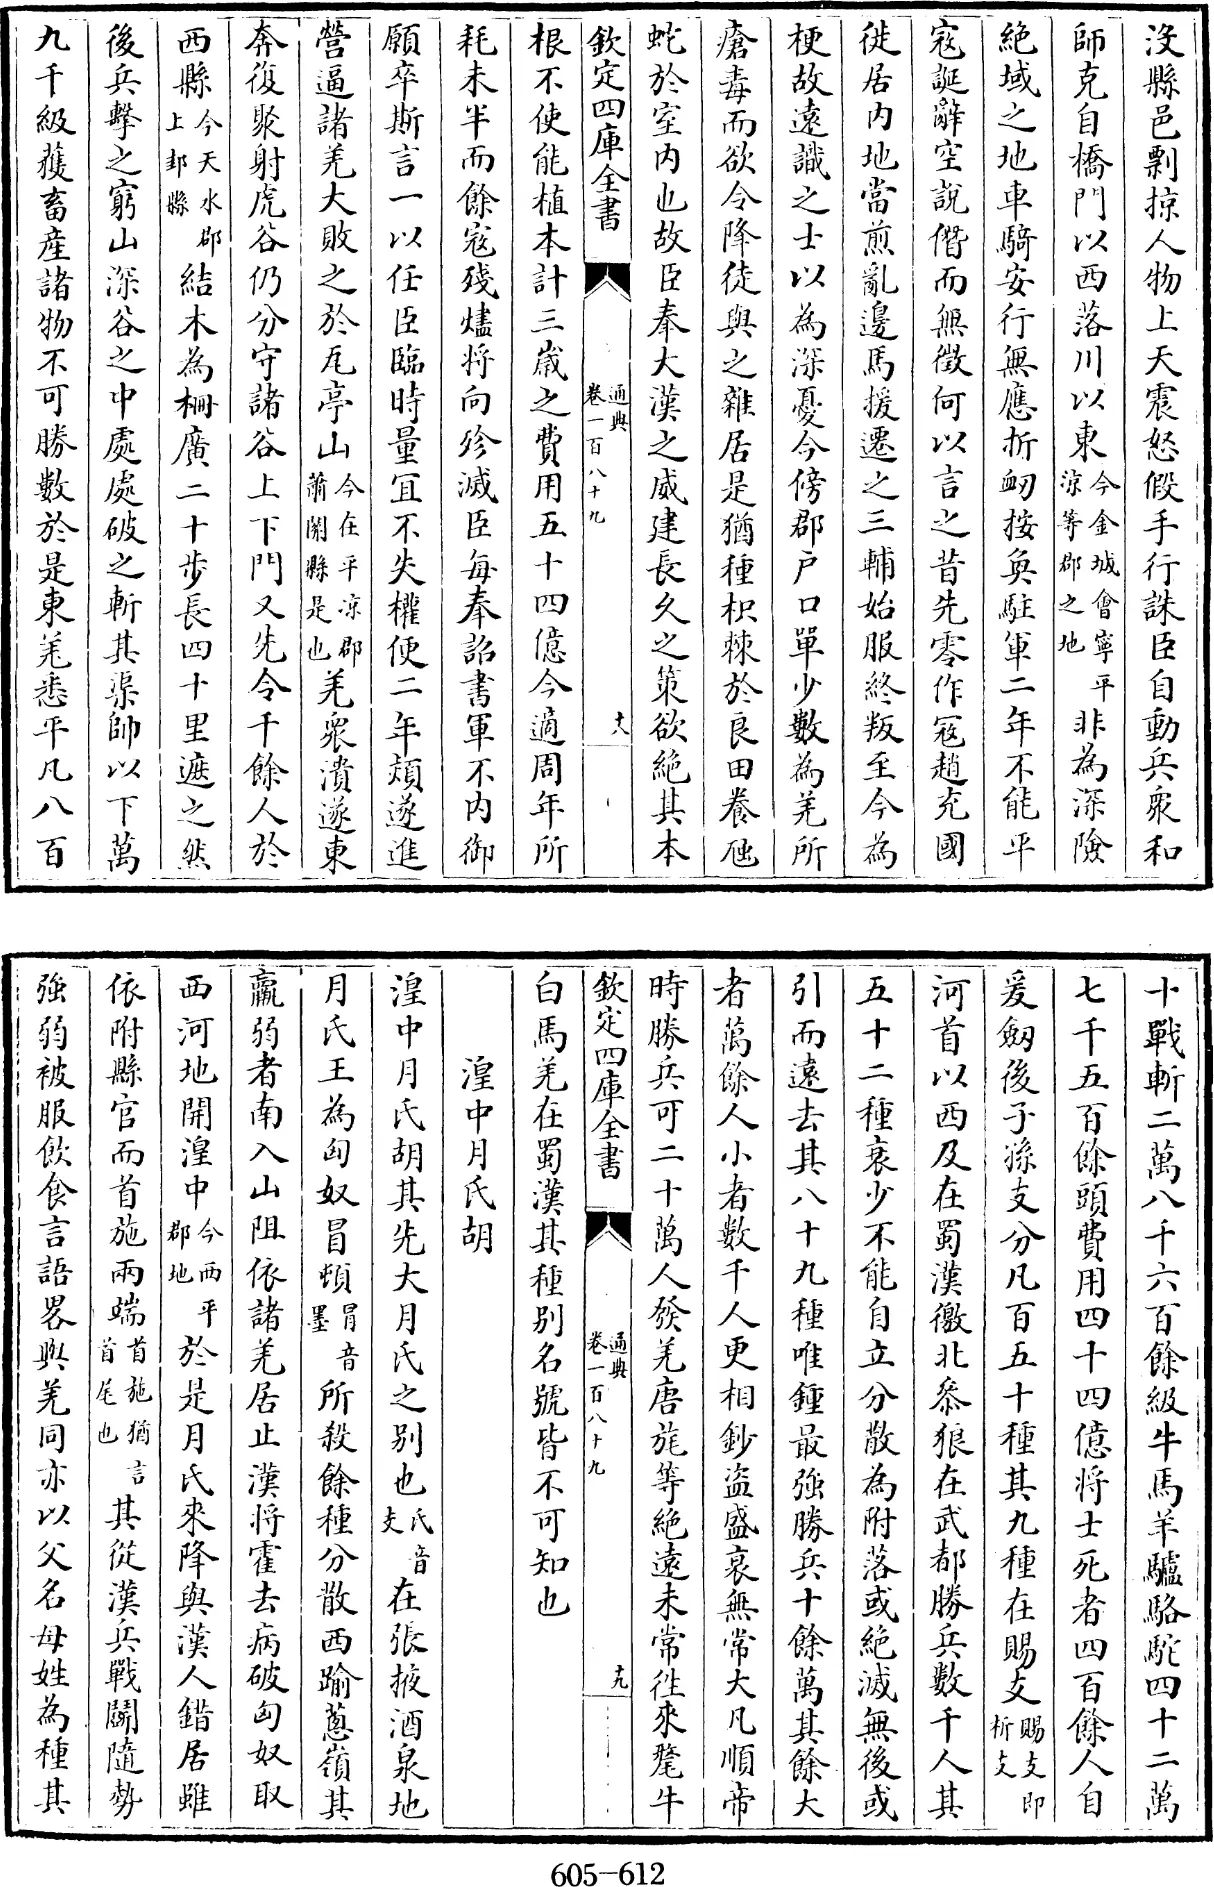 没縣邑剽掠人物上天震怒假手行誅臣自動兵衆和
師克自橋門以西落川以東今金城會寧平涼等郡之地非為深險
絶域之地車騎安行無應折衂按奐駐軍二年不能平
寇誕辭空說僭而無徵何以言之昔先零作寇趙充國
徙居内地當煎亂邊馬援遷之三輔始服終叛至今為
梗故遠識之士以為深憂今傍郡戸口單少數為羌所
瘡毒而欲令降徒與之雜居是猶種枳棘於良田養虺
蛇於室内也故臣奉大漢之威建長久之策欲絶其本
欽定四庫全書
通典
卷一百八十九
十八
根不使能植本計三嵗之費用五十四億今適周年所
耗未半而餘寇殘燼將向殄滅臣每奉詔書軍不内御
願卒斯言一以任臣臨時量宜不失權便二年熲遂進
營逼諸羌大敗之於瓦亭山今在平凉郡蕭闗縣是也羌衆潰遂東
奔復聚射虎谷仍分守諸谷上下門又先令千餘人於
西縣今天水郡上邽縣結木為柵廣二十步長四十里遮之然
後兵擊之窮山深谷之中處處破之斬其渠帥以下萬
九千級獲畜産諸物不可勝數於是東羌悉平凡八百
十戰斬二萬八千六百餘級牛馬羊驢駱駝四十二萬
七千五百餘頭費用四十四億將士死者四百餘人自
爰劒後子孫支分凡百五十種其九種在賜支賜支即析支
河首以西及在蜀漢徼北參狼在武都勝兵數千人其
五十二種衰少不能自立分散為附落或絶滅無後或
引而遠去其八十九種唯鍾最強勝兵十餘萬其餘大
者萬餘人小者數千人更相鈔盜盛衰無常大凡順帝
時勝兵可二十萬人發羌唐旄等絶遠未常徃來氂牛
欽定四庫全書
通典
卷一百八十九
十九
白馬羌在蜀漢其種别名號皆不可知也
湟中月氏胡
湟中月氏胡其先大月氏之别也氏音支在張掖酒泉地
月氏王為匈奴冒頓冒音墨所殺餘種分散西踰蔥嶺其
羸弱者南入山阻依諸羌居止漢將霍去病破匈奴取
西河地開湟中今西平郡地於是月氏來降與漢人錯居雖
依附縣官而首施兩端首施猶言首尾也其從漢兵戰鬭隨勢
強弱被服飲食言語畧與羌同亦以父名母姓為種其
605-612